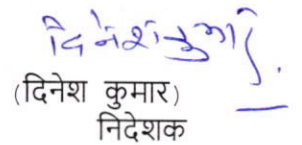 दिनेश कुमार
(दिनेश कुमार)
निदेशक